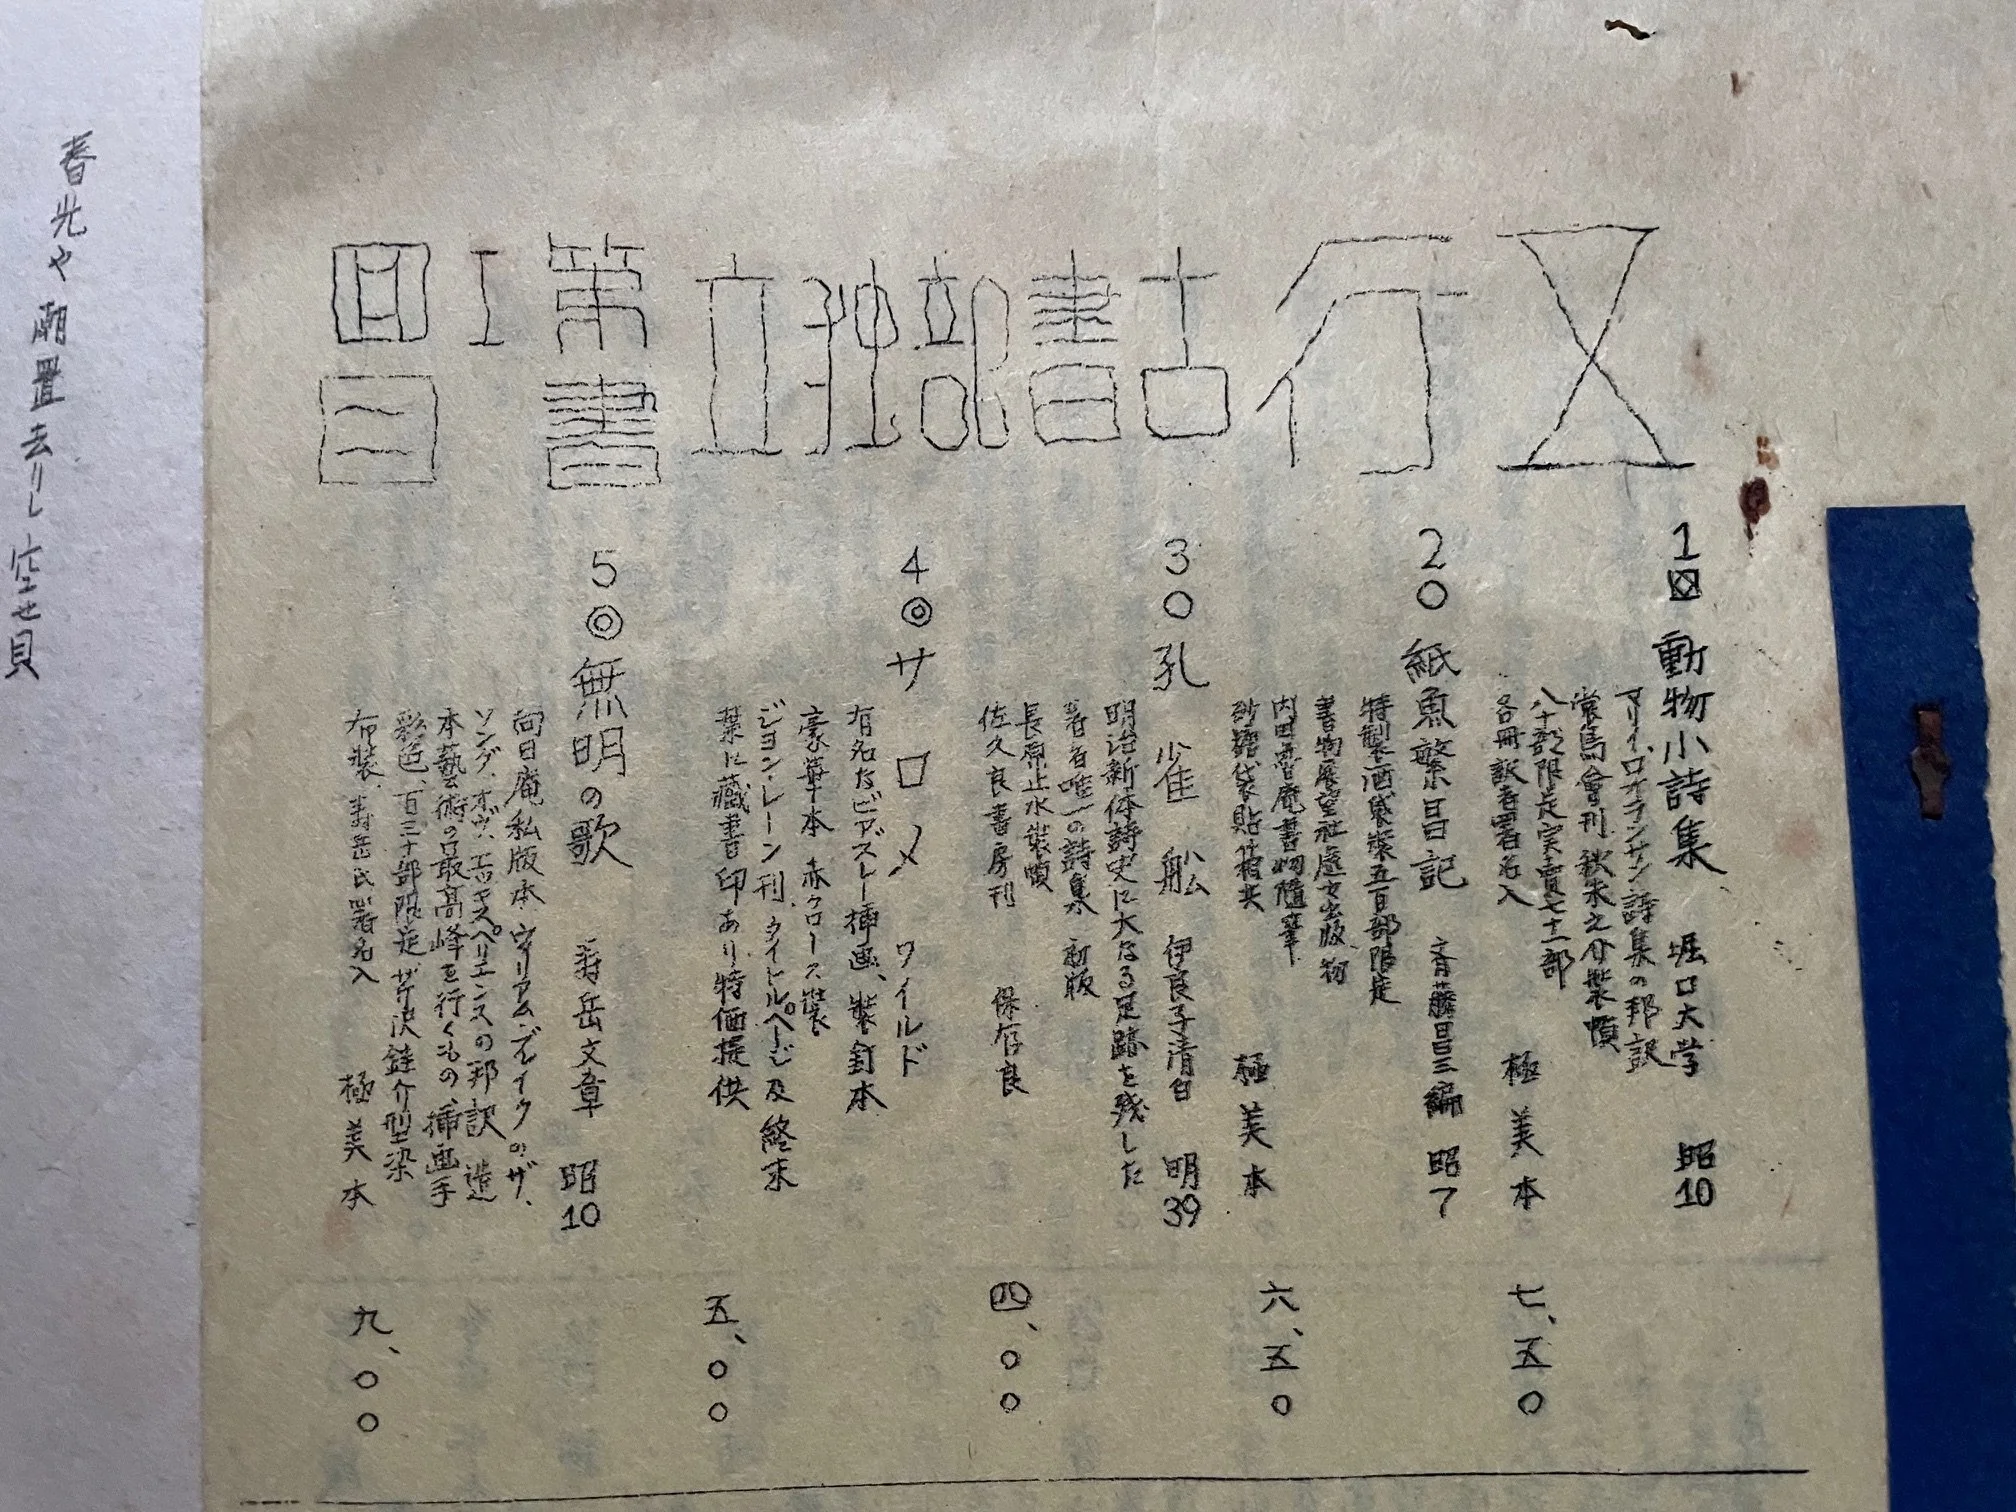 五行
古書部独立
第I回
書目
1 動物小詩集 堀口大学 昭10
マリイ、ロオランサン詩集の邦訳
裳鳥會刊 秋朱之介装幀
八十部限定実賣七十一部
各冊訳者署名入 極美本 七、五〇
2〇 紙魚繁昌記 斎藤昌三編 昭7
特製酒袋装五百部限定
書物展望社處女出版物
内田魯庵書物随筆
砂糖袋貼箱共 極美本 六、五〇
3〇 孔雀船 伊良子清白 明39
明治新体詩史に大なる足跡を残した
著者唯一の詩集 初版
長原止水装幀
佐久良書房刊 保存良 四、〇〇
4◎ サロメ ワイルド
有名なビアズレー挿画、装釘本
豪華本 赤クロース装
ジョン・レーン刊、タイトルページ及終末
葉に蔵書印あり特価提供 五、〇〇
5◎ 無明の歌 寿岳文章 昭10
向日庵私版本 ウイリアム・ブレイクのザ、
ソング、オヴ、エキスペリエンスの邦訳 造
本藝術の最高峰を行くもの、挿画手
彩色、百三十部限定 芹沢銈介型染
布装、寿岳氏署名入 極美本 九、〇〇
春光や潮置去りし空せ貝